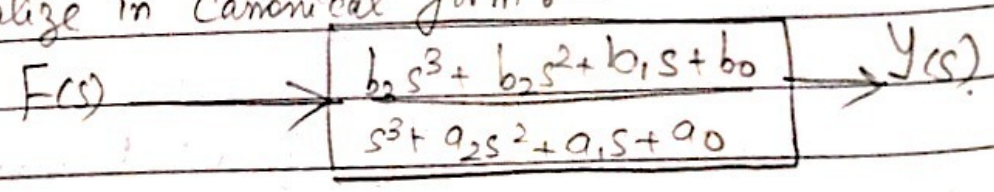 lize in Canonical form
F(s) b₂s³ + b₂s² + b₁s + b₀ Y(s)
s³ + a₂s² + a₁s + a₀